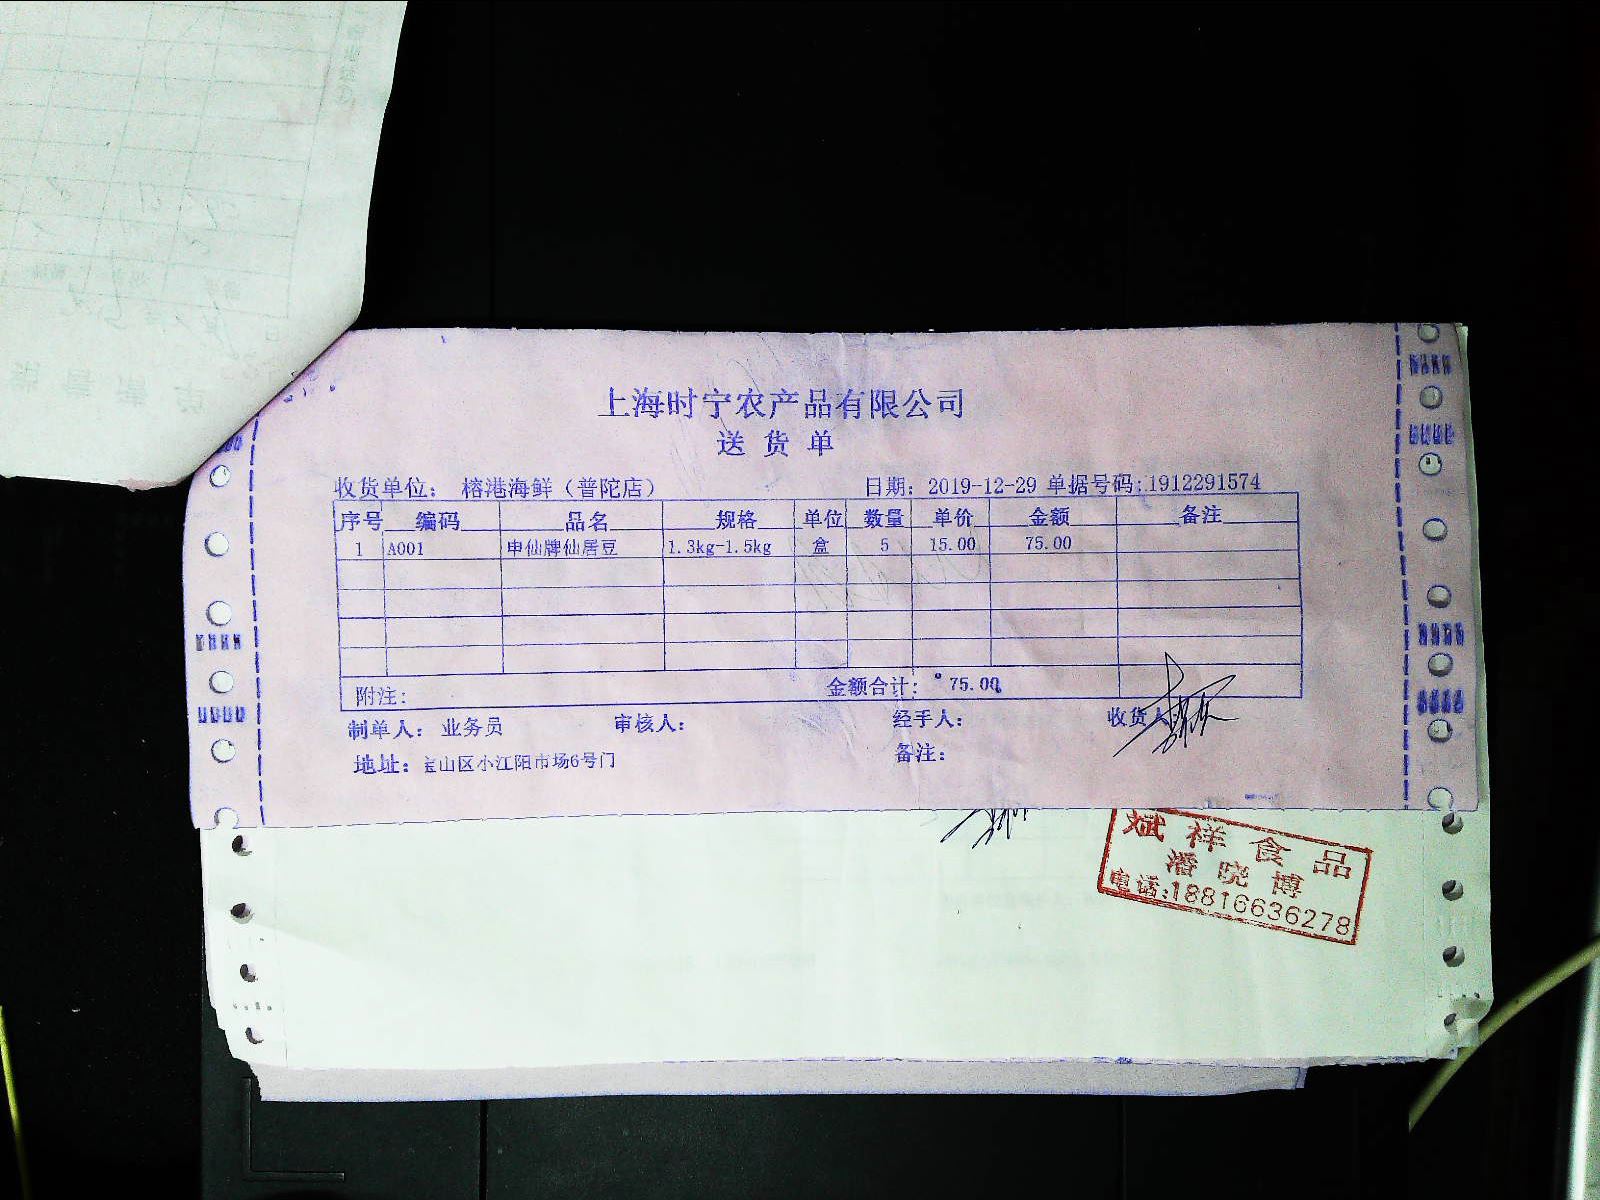 上海时宁农产品有限公司
送 货 单
收货单位： 榕港海鲜（普陀店） 日期：2019-12-29 单据号码：1912291574
序号 编码 品名 规格 单位 数量 单价 金额 备注
1 A001 申仙牌仙居豆 1.3kg-1.5kg 盒 5 15.00 75.00
附注： 金额合计： 75.00
制单人： 业务员 审核人： 经手人： 收货人
地址：宝山区小江阳市场6号门 备注：
斌祥食品
潘晓博
电话:18816636278